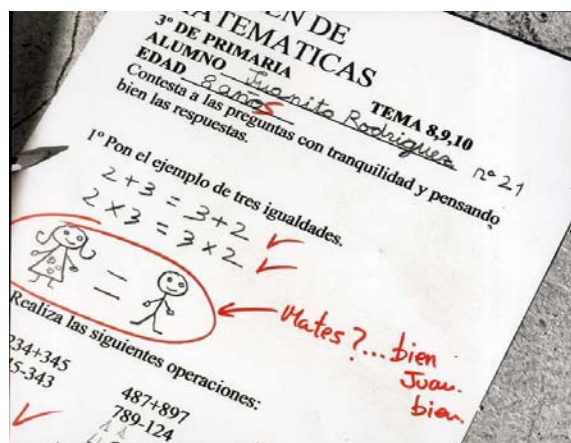 EN DE
MATEMATICAS
3º DE PRIMARIA
TEMA 8,9,10
ALUMNO Juanito Rodriguez nº 21
EDAD 8 años
Contesta a las preguntas con tranquilidad y pensando
bien las respuestas.
1º Pon el ejemplo de tres igualdades.
2 + 3 = 3 + 2
2 x 3 = 3 x 2
=
Mates?... bien
Juan.
bien.
Realiza las siguientes operaciones:
234+345
45-343
487+897
789-124